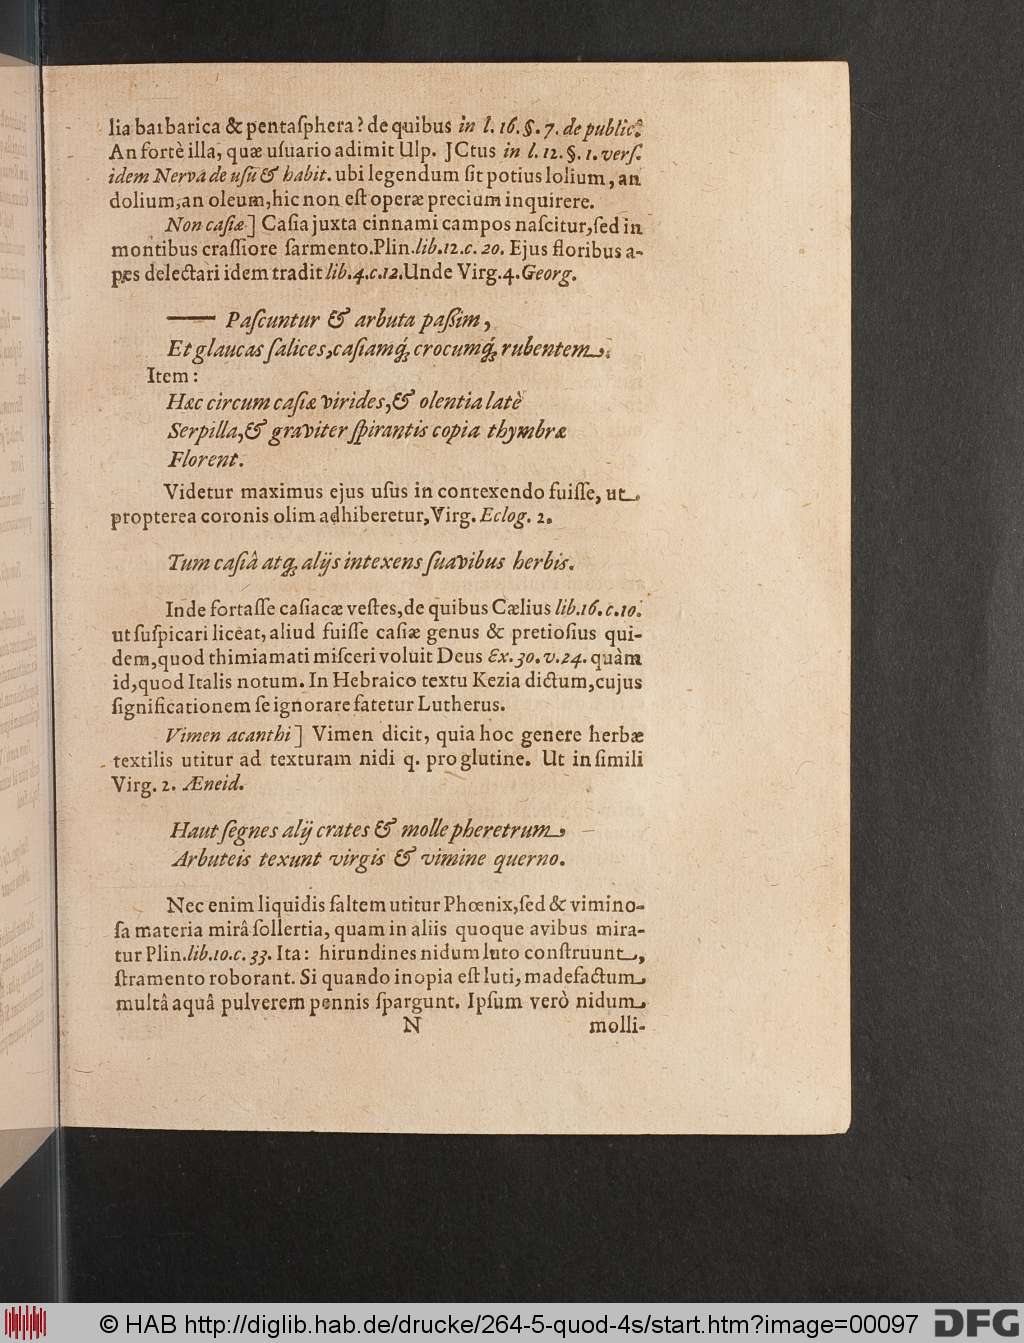 lia barbarica & pentaſphera? de quibus in l. 16. §. 7. de public?
An fortè illa, quæ uſuario adimit Ulp. JCtus in l. 12. §. 1. verſ.
idem Nerva de uſu & habit. ubi legendum ſit potius lolium, an
dolium, an oleum, hic non eſt operæ precium inquirere.
Non caſiæ] Caſia juxta cinnami campos naſcitur, ſed in
montibus craſſiore ſarmento. Plin. lib. 12. c. 20. Ejus floribus a-
pes delectari idem tradit lib. 4. c. 12. Unde Virg. 4. Georg.
—— Paſcuntur & arbuta paßim,
Et glaucas ſalices, caſiamq́; crocumq́; rubentem.
Item:
Hæc circum caſiæ virides, & olentia latè
Serpilla, & graviter ſpirantis copia thymbræ
Florent.
Videtur maximus ejus uſus in contexendo fuiſſe, ut
propterea coronis olim adhiberetur, Virg. Eclog. 2.
Tum caſiâ atq; alijs intexens ſuavibus herbis.
Inde fortaſſe caſiacæ veſtes, de quibus Cælius lib. 16. c. 10.
ut ſuſpicari liceat, aliud fuiſſe caſiæ genus & pretioſius qui-
dem, quod thimiamati miſceri voluit Deus Ex. 30. v. 24. quàm
id, quod Italis notum. In Hebraico textu Kezia dictum, cujus
ſignificationem ſe ignorare fatetur Lutherus.
Vimen acanthi] Vimen dicit, quia hoc genere herbæ
textilis utitur ad texturam nidi q. pro glutine. Ut in ſimili
Virg. 2. Æneid.
Haut ſegnes alij crates & molle pheretrum,
Arbuteis texunt virgis & vimine querno.
Nec enim liquidis ſaltem utitur Phœnix, ſed & vimino-
ſa materia mirâ ſollertia, quam in aliis quoque avibus mira-
tur Plin. lib. 10. c. 33. Ita: hirundines nidum luto conſtruunt,
ſtramento roborant. Si quando inopia eſt luti, madefactum
multâ aquâ pulverem pennis ſpargunt. Ipſum verò nidum
N molli-
© HAB http://diglib.hab.de/drucke/264-5-quod-4s/start.htm?image=00097
DFG